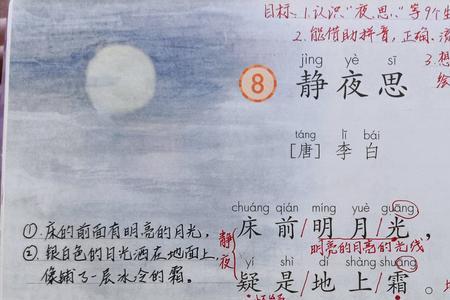 目标:1.认识“夜、思、”等9个生
2.能借助拼音,正确、流
3.想
jìng yè sī
8 静夜思
táng lǐ bái
[唐] 李白
chuáng qián míng yuè guāng
床前/明月/光,
明亮的月亮的光线
静夜
yí shì dì shàng shuāng
疑是/地上/霜。
①.床的前面有明亮的月光,
②.银白色的月光洒在地面上,
像铺了一层冰冷的霜。